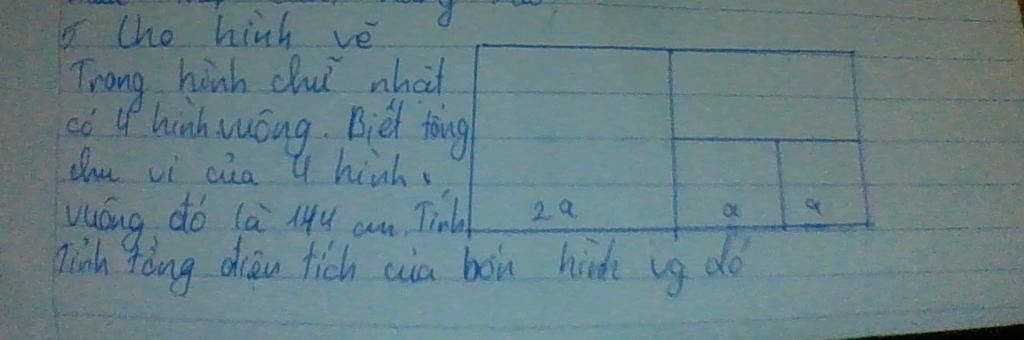 5 Cho hình vẽ
Trong hình chữ nhật
có 4 hình vuông. Biết tổng
chu vi của 4 hình
vuông đó là 144 cm. Tính
2a a a
Tính tổng diện tích của bốn hình vg đó